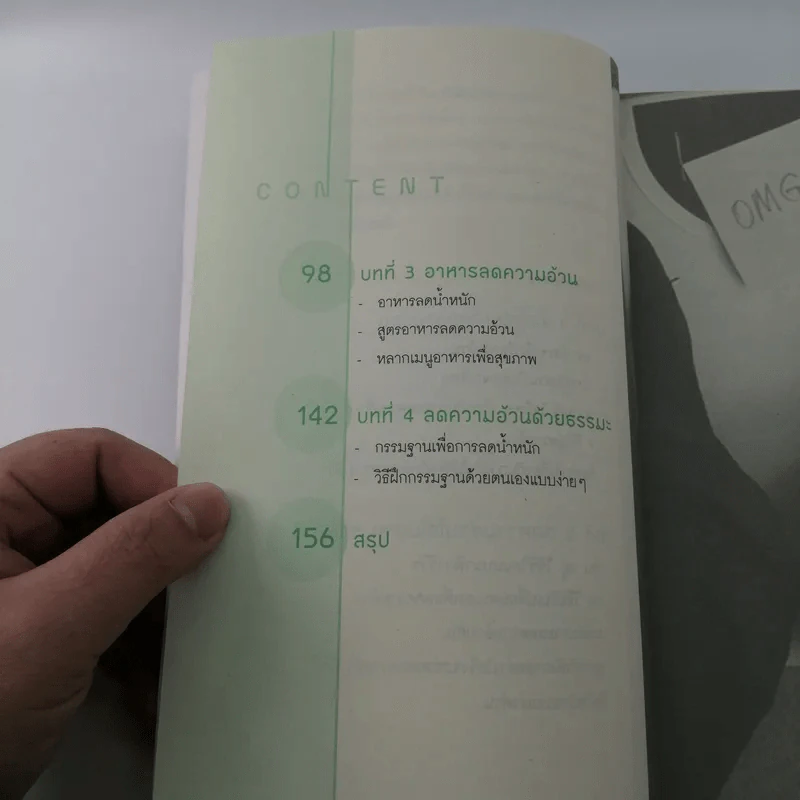 CONTENT
98 บทที่ 3 อาหารลดความอ้วน
- อาหารลดน้ำหนัก
- สูตรอาหารลดความอ้วน
- หลากเมนูอาหารเพื่อสุขภาพ
142 บทที่ 4 ลดความอ้วนด้วยธรรมะ
- กรรมฐานเพื่อการลดน้ำหนัก
- วิธีฝึกกรรมฐานด้วยตนเองแบบง่ายๆ
156 สรุป
OMG